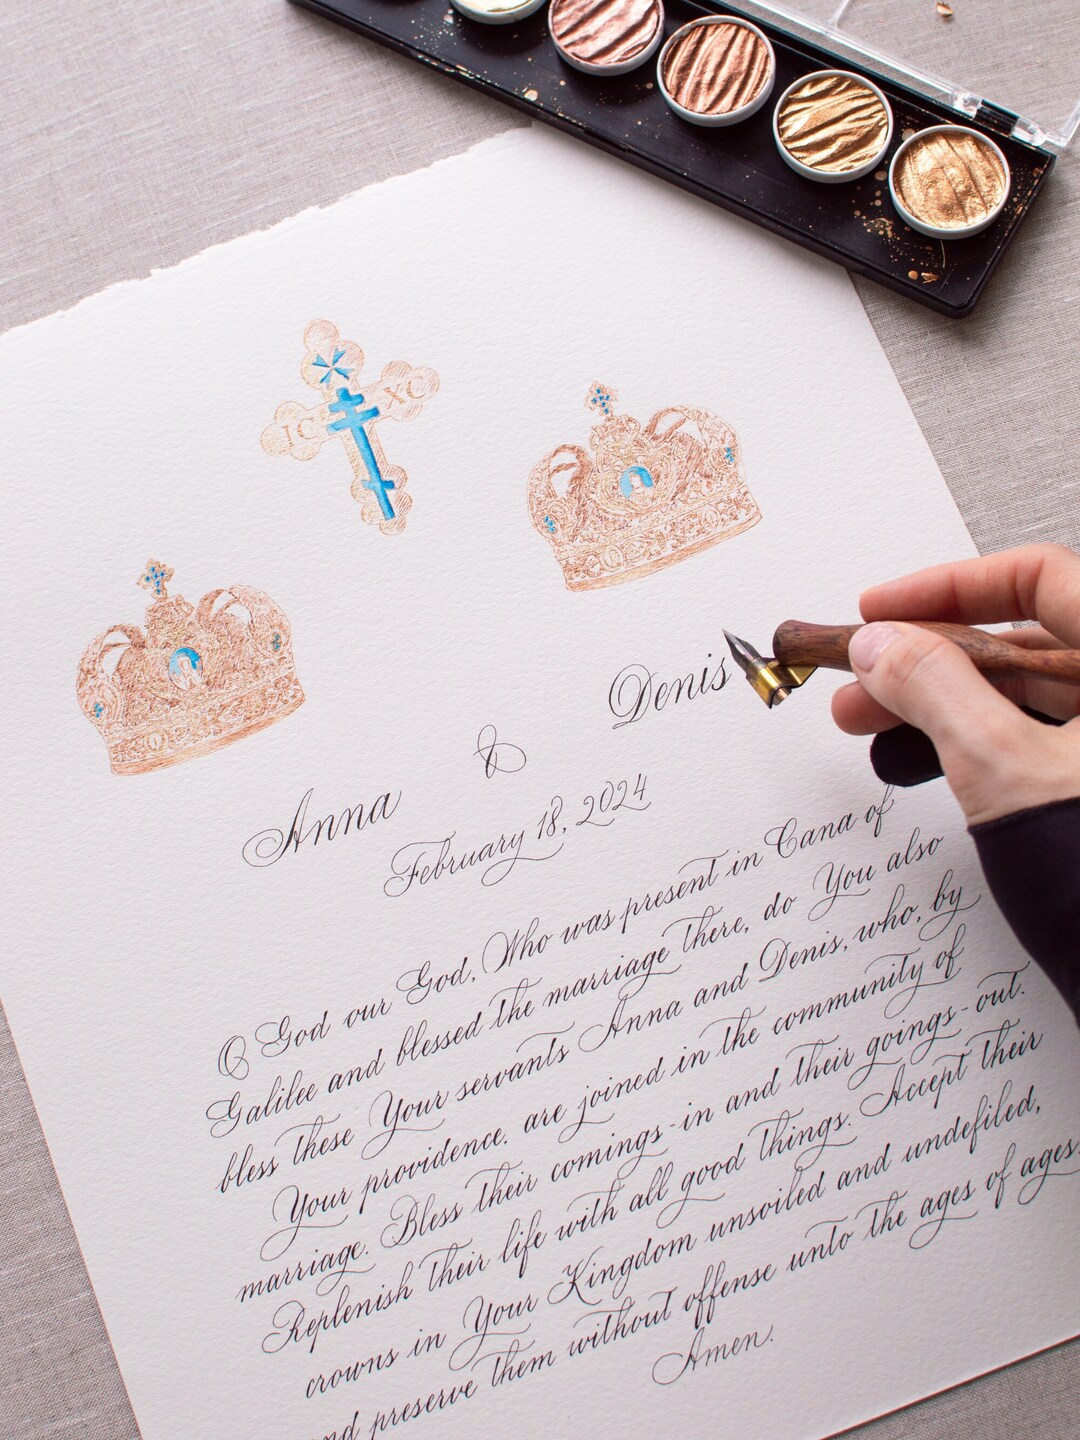 IC XC
Denis
&
Anna
February 18, 2024
O God our God, Who was present in Cana of
Galilee and blessed the marriage there, do You also
bless these Your servants Anna and Denis, who, by
Your providence, are joined in the community of
marriage. Bless their comings-in and their goings-out.
Replenish their life with all good things. Accept their
crowns in Your Kingdom unsoiled and undefiled,
and preserve them without offense unto the ages of ages.
Amen.